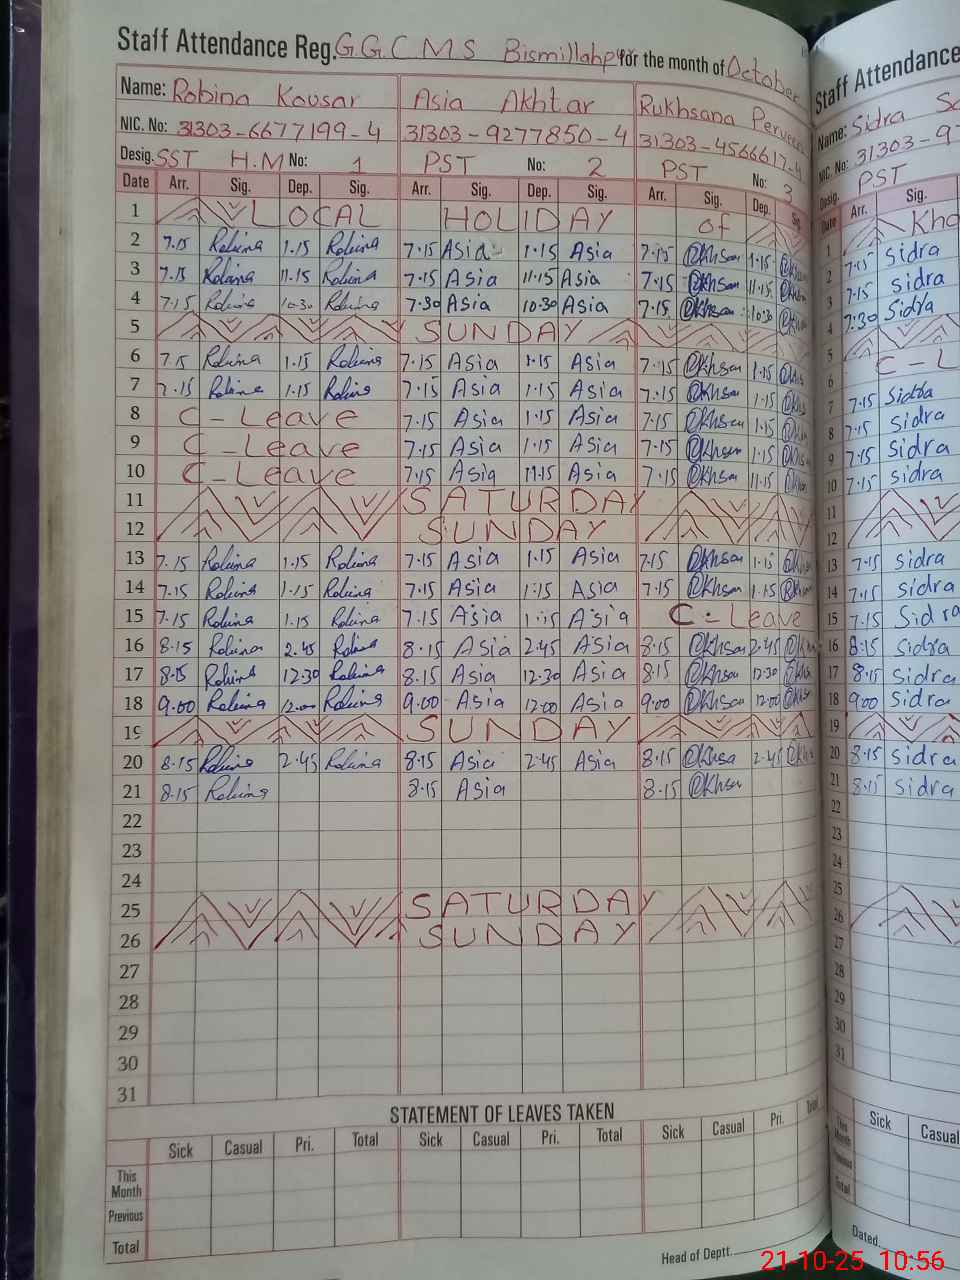 Staff Attendance Reg. G.G.C.M.S Bismillahpur for the month of October
Name: Robina Kousar Asia Akhtar Rukhsana Perveen
NIC. No: 31303-6677199-4 31303-9277850-4 31303-4566617-4
Desig. SST H.M No: 1 PST No: 2 PST No: 3
Date Arr. Sig. Dep. Sig. Arr. Sig. Dep. Sig. Arr. Sig. Dep. Sig.
1 LOCAL HOLIDAY of
2 7.15 Robina 1.15 Robina 7.15 Asia 1.15 Asia 7.15 Rukhsan 1.15
3 7.15 Robina 11.15 Robina 7.15 Asia 11.15 Asia 7.15 Rukhsan 11.15
4 7.15 Robina 10.30 Robina 7.30 Asia 10.30 Asia 7.15 Rukhsan 10.30
5 SUNDAY
6 7.15 Robina 1.15 Robina 7.15 Asia 1.15 Asia 7.15 Rukhsan 1.15
7 7.15 Robina 1.15 Robina 7.15 Asia 1.15 Asia 7.15 Rukhsan 1.15
8 C-Leave 7.15 Asia 1.15 Asia 7.15 Rukhsan 1.15
9 C-Leave 7.15 Asia 1.15 Asia 7.15 Rukhsan 1.15
10 C-Leave 7.15 Asia 11.15 Asia 7.15 Rukhsan 11.15
11 SATURDAY
12 SUNDAY
13 7.15 Robina 1.15 Robina 7.15 Asia 1.15 Asia 7.15 Rukhsan 1.15
14 7.15 Robina 1.15 Robina 7.15 Asia 1.15 Asia 7.15 Rukhsan 1.15
15 7.15 Robina 1.15 Robina 7.15 Asia 1.15 Asia C-Leave
16 8.15 Robina 2.45 Robina 8.15 Asia 2.45 Asia 8.15 Rukhsan 2.45
17 8.15 Robina 12.30 Robina 8.15 Asia 12.30 Asia 8.15 Rukhsan 12.30
18 9.00 Robina 12.00 Robina 9.00 Asia 12.00 Asia 9.00 Rukhsan 12.00
19 SUNDAY
20 8.15 Robina 2.45 Robina 8.15 Asia 2.45 Asia 8.15 Rukhsa 2.45
21 8.15 Robina 8.15 Asia 8.15 Rukhsan
22
23
24
25 SATURDAY
26 SUNDAY
27
28
29
30
31
STATEMENT OF LEAVES TAKEN
Sick Casual Pri. Total Sick Casual Pri. Total Sick Casual Pri. Total
This Month
Previous
Total
Head of Deptt.
Staff Attendance
Name: Sidra
NIC. No: 31303-97
Desig. PST
Date Arr. Sig.
1
2 7.15 Sidra
3 7.15 Sidra
4 7.30 Sidra
5
6 C-L
7 7.15 Sidra
8 7.15 Sidra
9 7.15 Sidra
10 7.15 Sidra
11
12
13 7.15 Sidra
14 7.15 Sidra
15 7.15 Sidra
16 8.15 Sidra
17 8.15 Sidra
18 9.00 Sidra
19
20 8.15 Sidra
21 8.15 Sidra
22
23
24
25
26
27
28
29
30
31
Sick Casual
This Month
Total
Dated.
21-10-25 10:56